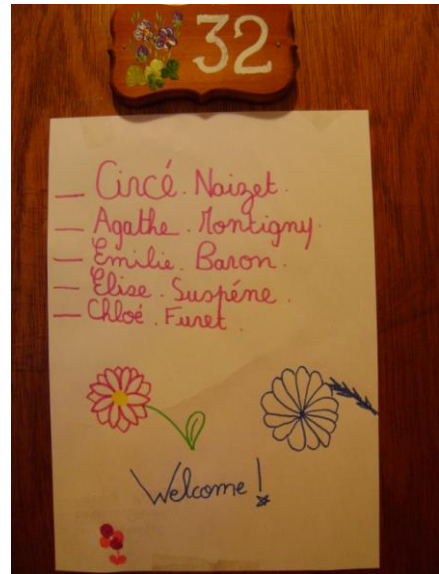 32
_ Circé. Naizet.
_ Agathe. Montigny.
_ Emilie. Baron.
_ Elise. Suspéne.
_ Chloé. Furet.
Welcome!